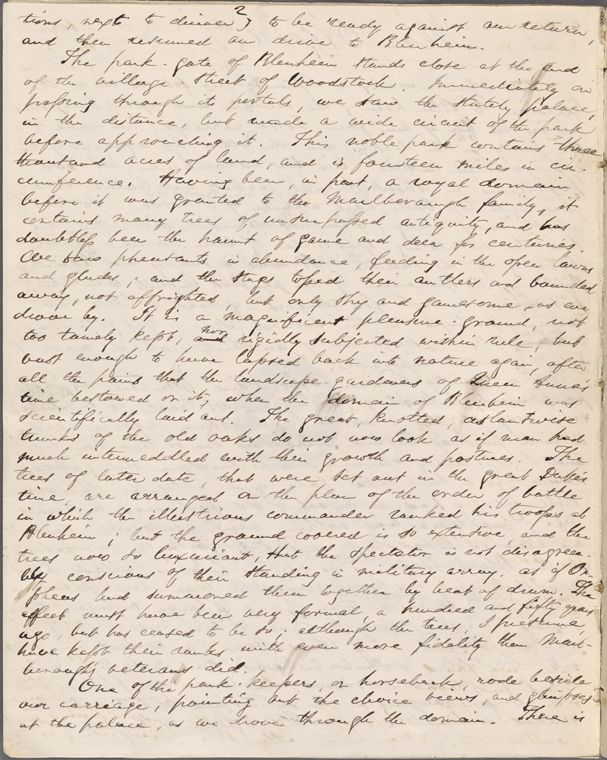 2
tions, next to dinner) to be ready against our return,
and then resumed our drive to Blenheim.
The park-gate of Blenheim stands close at the end
of the village-street of Woodstock. Immediately on
passing through its portals, we saw the stately palace,
in the distance, but made a wide circuit of the park
before approaching it. This noble park contains three
thousand acres of land, and is fourteen miles in cir-
cumference. Having been, in part, a royal domain
before it was granted to the Marlborough family, it
contains many trees of unsurpassed antiquity, and has
doubtless been the haunt of game and deer for centuries.
We saw pheasants in abundance, feeding in the open lawns
and glades; and the stags tossed their antlers and bounded
away, not affrighted, but only shy and gamesome, as we
drove by. It is a magnificent pleasure-ground, not
too tamely kept, nor rigidly subjected within rule, but
vast enough to have lapsed back into nature again, after
all the pains that the landscape-gardeners of Queen Anne's
time bestowed on it, when the domain of Blenheim was
scientifically laid out. The great, knotted, aslantwise
trunks of the old oaks do not now look as if man had
much intermeddled with their growth and postures. The
trees of later date, that were set out in the great Duke's
time, are arranged on the plan of the order of battle
in which the illustrious commander ranked his troops at
Blenheim; but the ground covered is so extensive, and the
trees now so luxuriant, that the spectator is not disagree-
bly conscious of their standing in military array, as if Or-
pheus had summoned them together by beat of drum. The
effect must have been very formal, a hundred and fifty years
ago, but has ceased to be so; although the trees, I presume,
have kept their ranks with even more fidelity than Marl-
borough's veterans did.
One of the park-keepers, on horseback, rode beside
our carriage, pointing out the choice views, and glimpses
at the palace, as we drove through the domain. There is